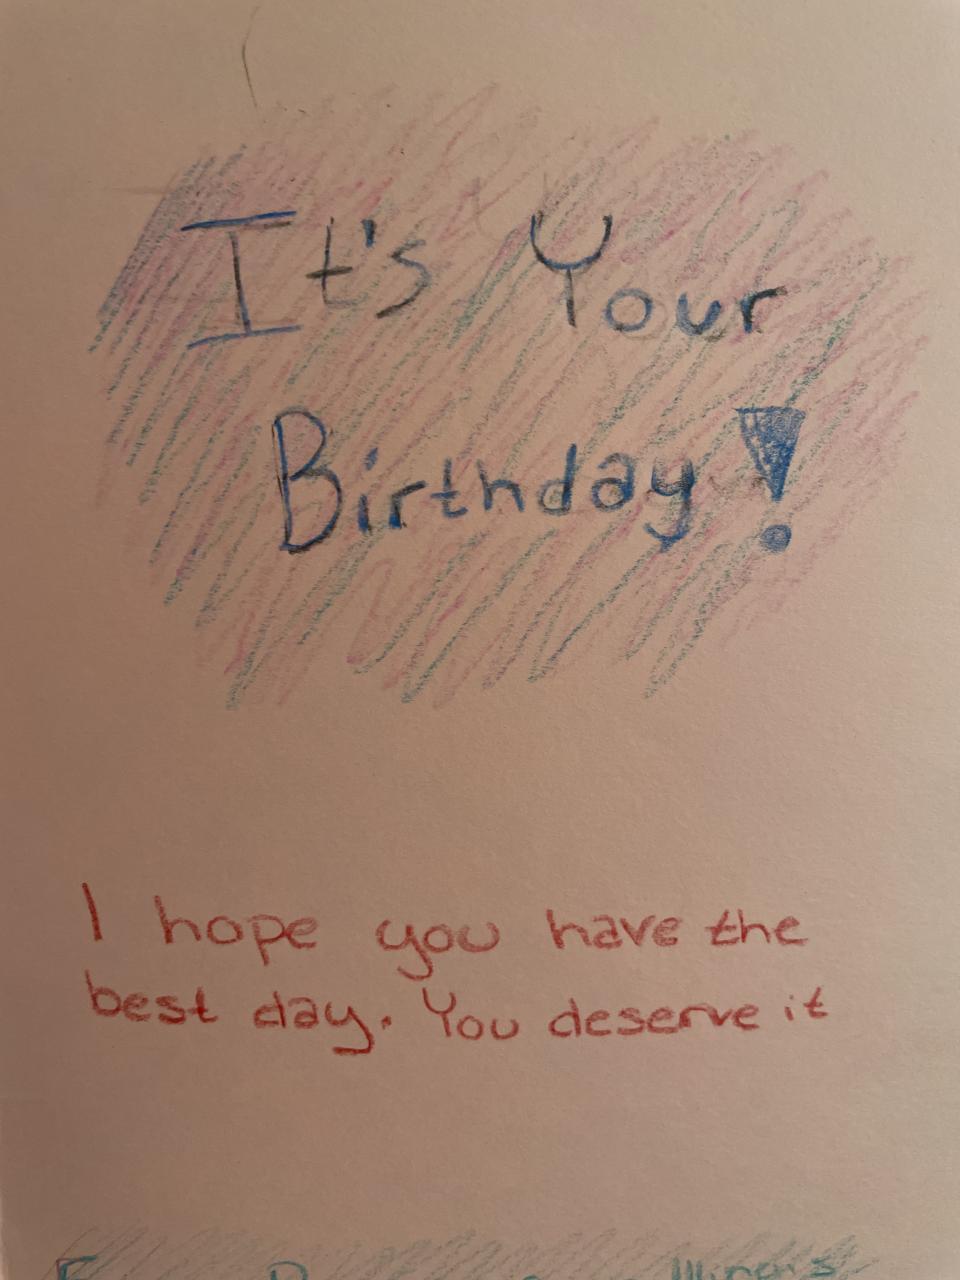 It's Your
Birthday!
I hope you have the
best day. You deserve it
Illinois